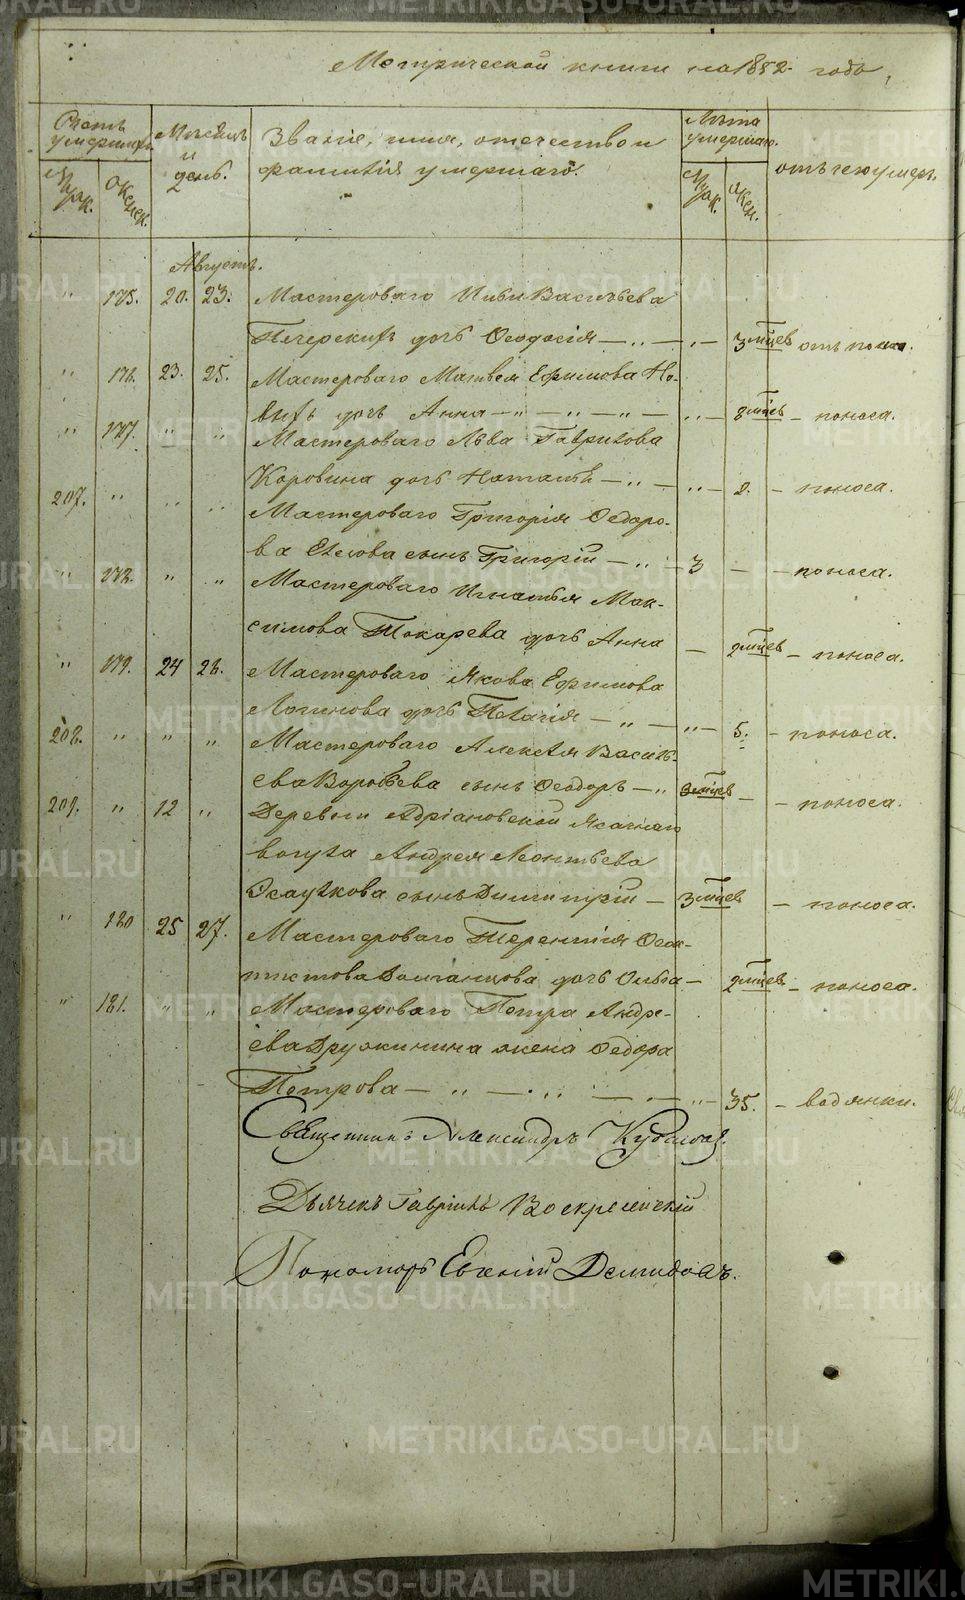 Метрической книги на 1852 года,
Счетъ умершихъ.
Муж.
Женск.
Месяцъ и день.
Званіе, имя, отечество и фамилія умершаго.
Лета умершаго.
Муж.
Жен.
отъ чего умеръ.
Августъ.
" 175. 20. 23. Мастероваго Васильева
Печерскихъ дочь Феодосія — " — " — 3 мцев отъ поноса.
" 176. 23. 25. Мастероваго Матвея Ефимова
дочь Анна — " — " — " — " — 8 мцев — поноса.
" 177. " " Мастероваго Льва Гаврилова
Коровина дочь Наталья — " — " — 2. — поноса.
207. " " " Мастероваго Григорія Федоро-
ва сынъ Григорій — " — 3 — — поноса.
" 178. " " Мастероваго Игнатья Мак-
симова Токарева дочь Анна — 2 мцев — поноса.
" 179. 24 26. Мастероваго Якова Ефимова
Логинова дочь Пелагія — " — " — 5. — поноса.
208. " " " Мастероваго Алексея Василь-
ева Воробьева сынъ Феодоръ — " 3 мцев — — поноса.
209. " 12 " Деревни Адріановской Ясачнаго
вогула Андрея Леонтьева
сынъ Димитрій — 3 мцев — поноса.
" 180 25 27. Мастероваго Терентия Феок-
тистова дочь Ольга — 2 мцев — поноса.
" 181. " " Мастероваго Петра Андре-
ева Дружинина жена Федора
Петрова — " — " — " — 35. — водянки.
Священникъ Александръ
Дьячекъ Гавріилъ Воскресенскій
Пономарь Евгеній Демидовъ.
METRIKI.GASO-URAL.RU